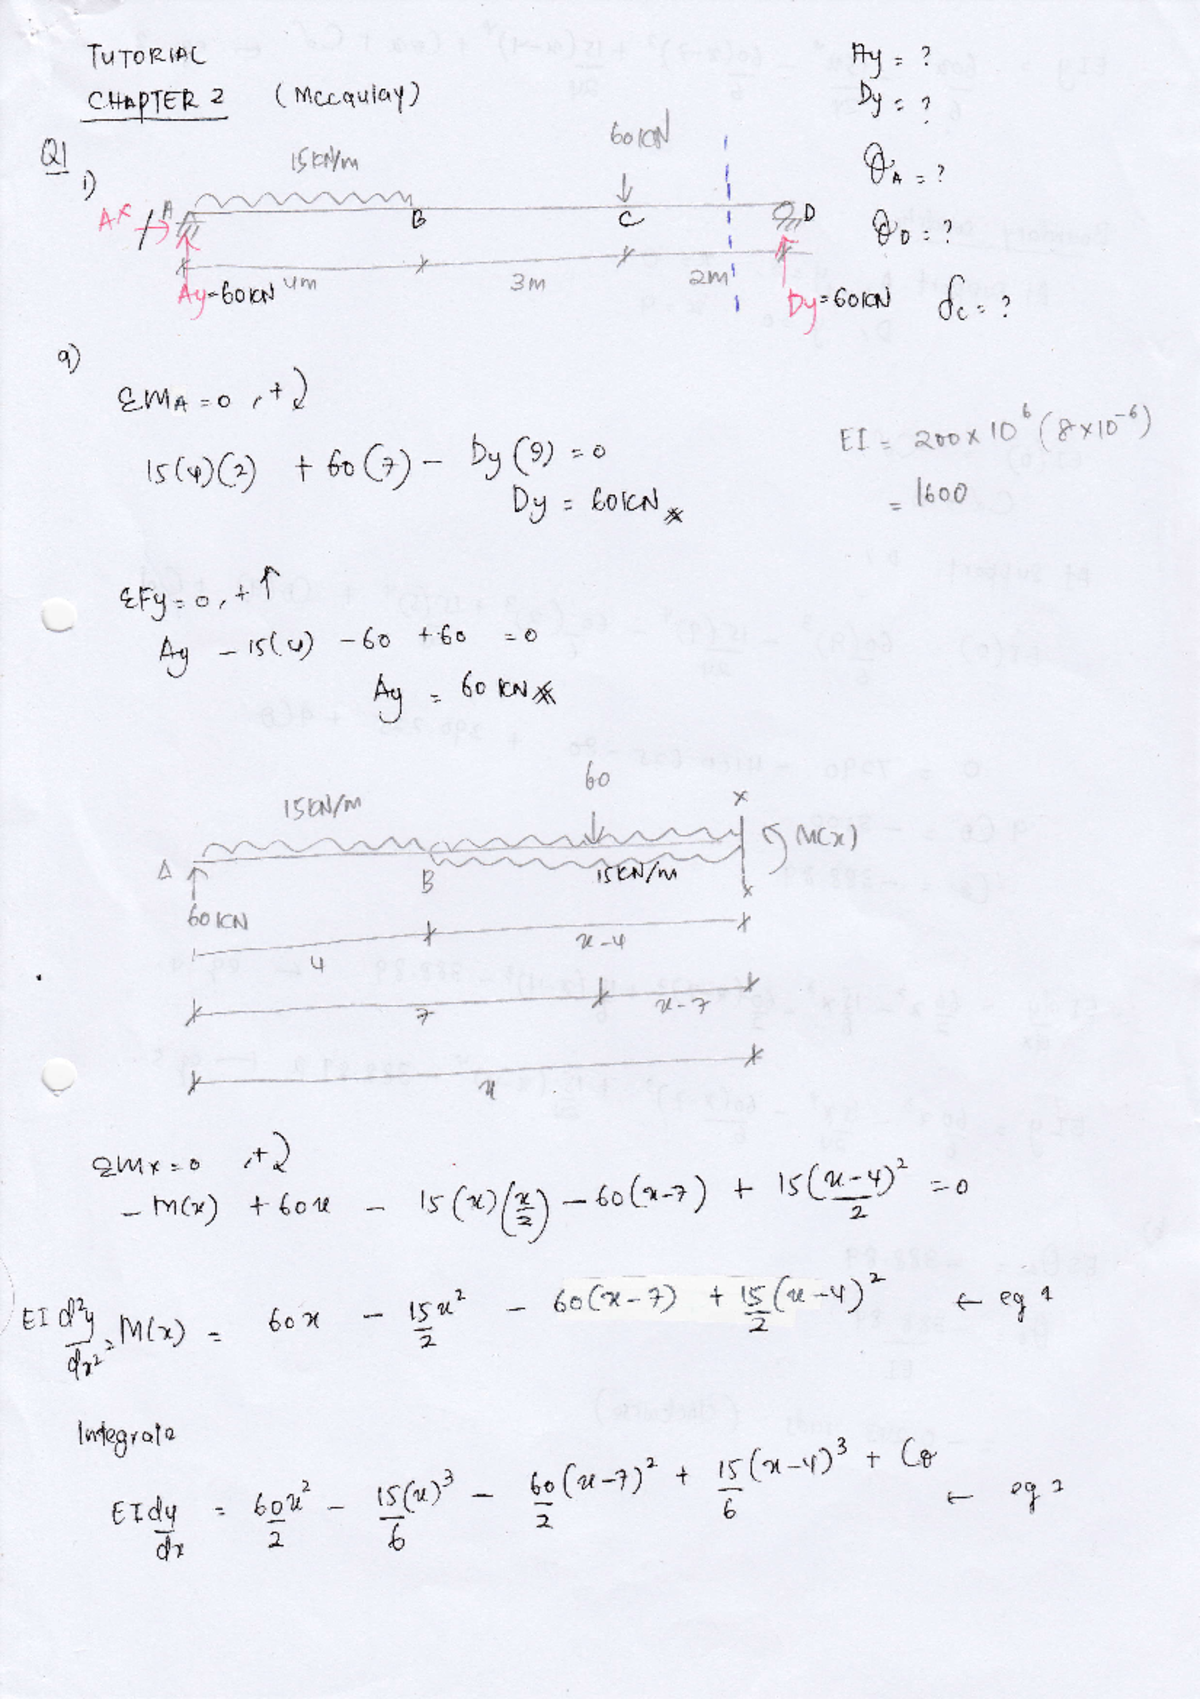 TUTORIAL
CHAPTER 2 (Mccaulay)
Ay = ?
Dy = ?
θA = ?
θD = ?
δc = ?
Q1
i)
15KN/m
60KN
Ax
A
B
C
D
4m
3m
2m
Ay=60KN
Dy=60KN
a)
ΣMA = 0 , +
15(4)(2) + 60(7) - Dy(9) = 0
Dy = 60KN
EI = 200×10⁶(8×10⁻⁶)
= 1600
ΣFy = 0, +↑
Ay - 15(4) - 60 + 60 = 0
Ay = 60 KN
15KN/m
60
x
M(x)
A
B
15KN/m
x
60KN
4
x-4
7
x-7
x
ΣMx = 0 , +
- M(x) + 60x - 15(x)(x/2) - 60(x-7) + 15(x-4)²/2 = 0
EI d²y/dx² = M(x) = 60x - 15x²/2 - 60(x-7) + 15/2(x-4)² ← eq 1
Integrate
EI dy/dx = 60x²/2 - 15(x)³/6 - 60/2(x-7)² + 15/6(x-4)³ + Cθ ← eq 2